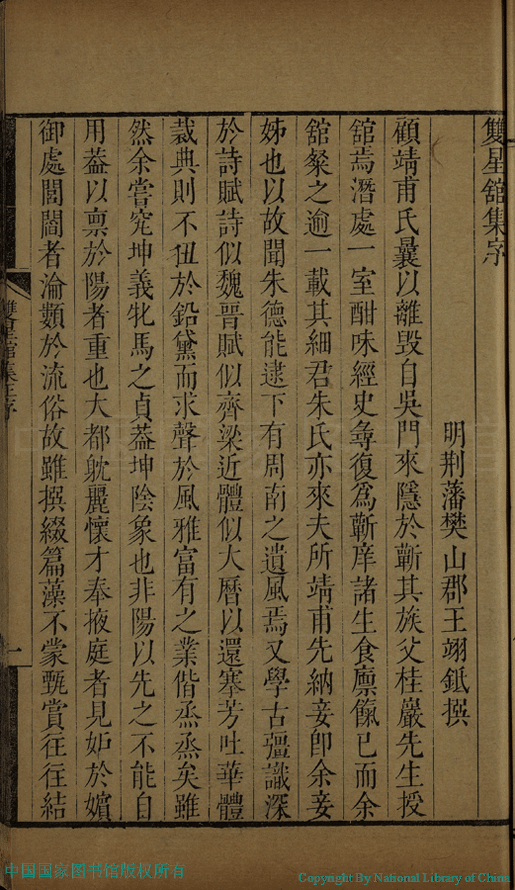 雙星舘集序
明荆藩樊山郡王翊䣌撰
顧靖甫氏曩以離毁自吳門來隱於蘄其族父桂巖先生授
舘焉潛處一室酣味經史尋復爲蘄庠諸生食廪餼已而余
舘粲之逾一載其細君朱氏亦來夫所靖甫先納妾卽余妾
姊也以故聞朱德能逮下有周南之遺風焉又學古彊識深
於詩賦詩似魏晋賦似齊梁近體似大曆以還搴芳吐華體
裁典則不丑於鉛黛而求聲於風雅富有之業偕烝烝矣雖
然余嘗究坤義牝馬之貞葢坤陰象也非陽以先之不能自
用葢以禀於陽者重也大都躭麗懷才奉掖庭者見妒於嬪
御處閭閻者淪類於流俗故雖撰綴篇藻不蒙甄賞往往結
雙星舘集序
一
中国国家图书馆版权所有
Copyright By National Library of China